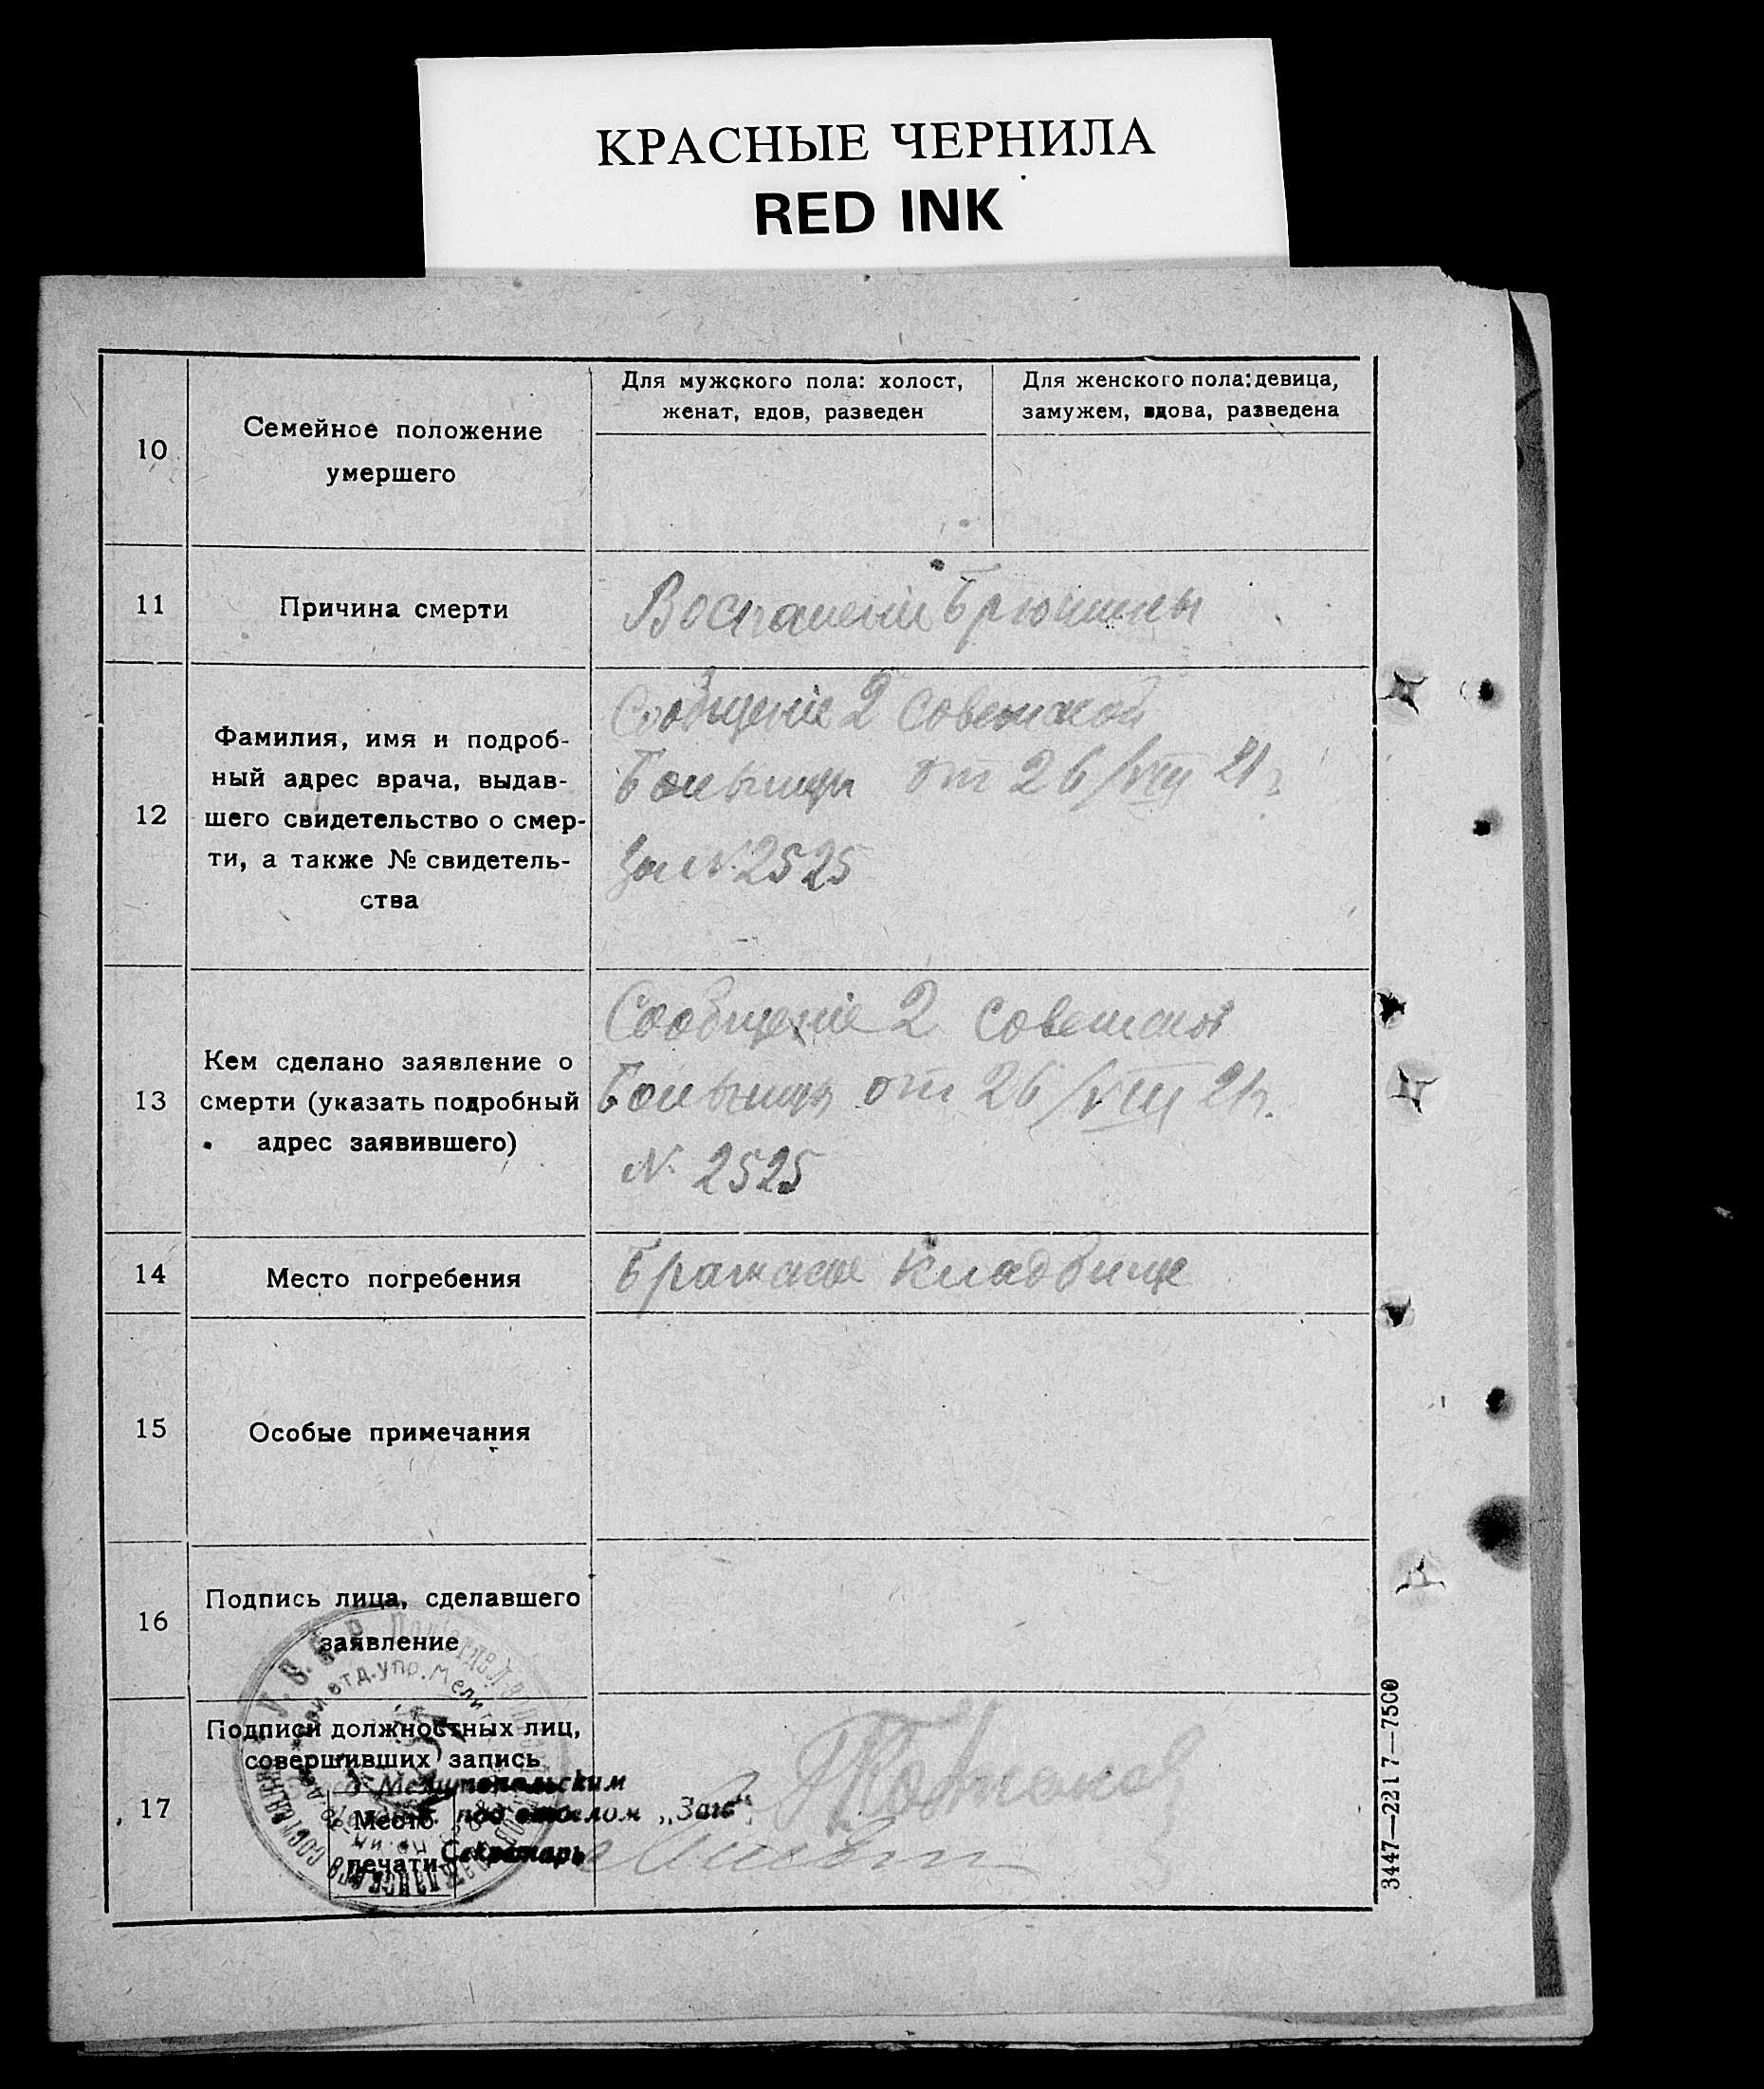 КРАСНЫЕ ЧЕРНИЛА
RED INK
10
Семейное положение
умершего
Для мужского пола: холост,
женат, вдов, разведен
Для женского пола: девица,
замужем, вдова, разведена
11
Причина смерти
Воспаление Брюшины
12
Фамилия, имя и подроб-
ный адрес врача, выдав-
шего свидетельство о смер-
ти, а также № свидетель-
ства
Сообщеніе 2 советской
Больницы от 26/VIII 21 г.
За № 2525
13
Кем сделано заявление о
смерти (указать подробный
адрес заявившего)
Сообщеніе 2 советской
Больницы от 26/VIII 21 г.
№ 2525
14
Место погребения
Братское кладбище
15
Особые примечания
16
Подпись лица, сделавшего
заявление
17
Подписи должностных лиц,
совершивших запись
Мелитопольским
Место
подотделом „Загс“
печати
Секретарь
3447—2217—7500